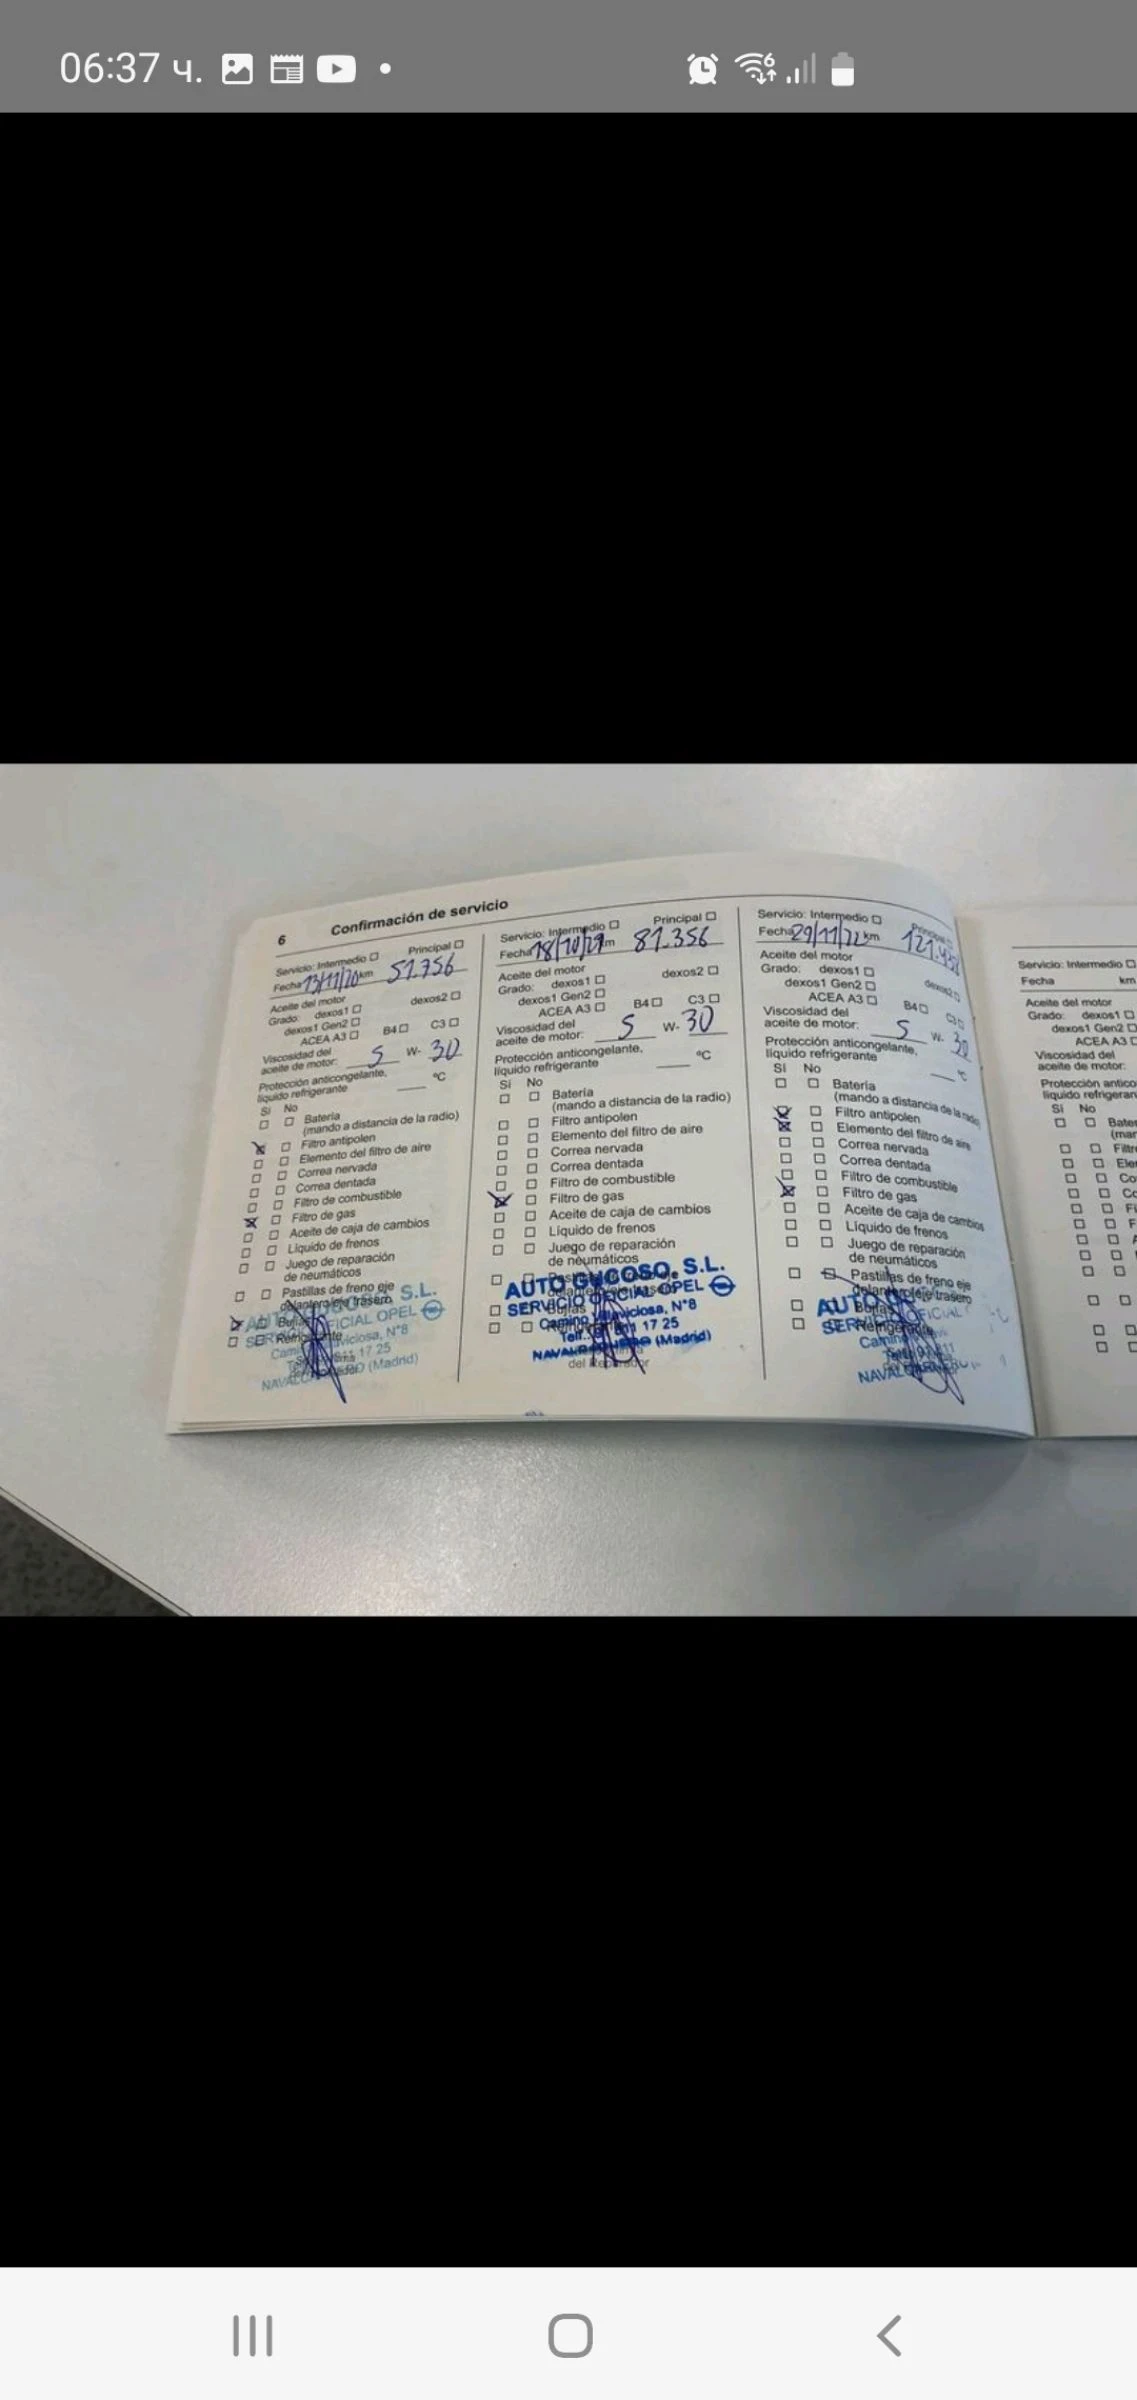 06:37 ч.
6 Confirmación de servicio
Servicio: Intermedio Principal
Fecha 13/11/20 km 51.756
Aceite del motor
Grado: dexos1 dexos2
dexos1 Gen2
ACEA A3 B4 C3
Viscosidad del
aceite de motor: 5 W- 30
Protección anticongelante,
líquido refrigerante °C
Sí No
Batería
(mando a distancia de la radio)
Filtro antipolen
Elemento del filtro de aire
Correa nervada
Correa dentada
Filtro de combustible
Filtro de gas
Aceite de caja de cambios
Líquido de frenos
Juego de reparación
de neumáticos
Pastillas de freno eje
delantero/eje trasero
Bujías
Refrigerante
S.L.
OFICIAL OPEL
N°8
17 25
(Madrid)
Servicio: Intermedio Principal
Fecha 18/10/21 km 81.356
Aceite del motor
Grado: dexos1 dexos2
dexos1 Gen2
ACEA A3 B4 C3
Viscosidad del
aceite de motor: 5 W- 30
Protección anticongelante,
líquido refrigerante °C
Sí No
Batería
(mando a distancia de la radio)
Filtro antipolen
Elemento del filtro de aire
Correa nervada
Correa dentada
Filtro de combustible
Filtro de gas
Aceite de caja de cambios
Líquido de frenos
Juego de reparación
de neumáticos
AUTO GUCOSO, S.L.
SERVICIO OFICIAL OPEL
Camino Villaviciosa, N°8
Telf. 17 25
(Madrid)
del Reparador
Servicio: Intermedio Principal
Fecha 29/11/22 km
Aceite del motor
Grado: dexos1 dexos2
dexos1 Gen2
ACEA A3 B4 C3
Viscosidad del
aceite de motor: 5 W- 30
Protección anticongelante,
líquido refrigerante °C
Sí No
Batería
(mando a distancia de la radio)
Filtro antipolen
Elemento del filtro de aire
Correa nervada
Correa dentada
Filtro de combustible
Filtro de gas
Aceite de caja de cambios
Líquido de frenos
Juego de reparación
de neumáticos
Pastillas de freno eje
delantero/eje trasero
Bujías
Refrigerante
AUTO
OFICIAL
Camino
Servicio: Intermedio
Fecha km
Aceite del motor
Grado: dexos1
dexos1 Gen2
ACEA A3
Viscosidad del
aceite de motor:
Protección antico
líquido refrigeran
Sí No